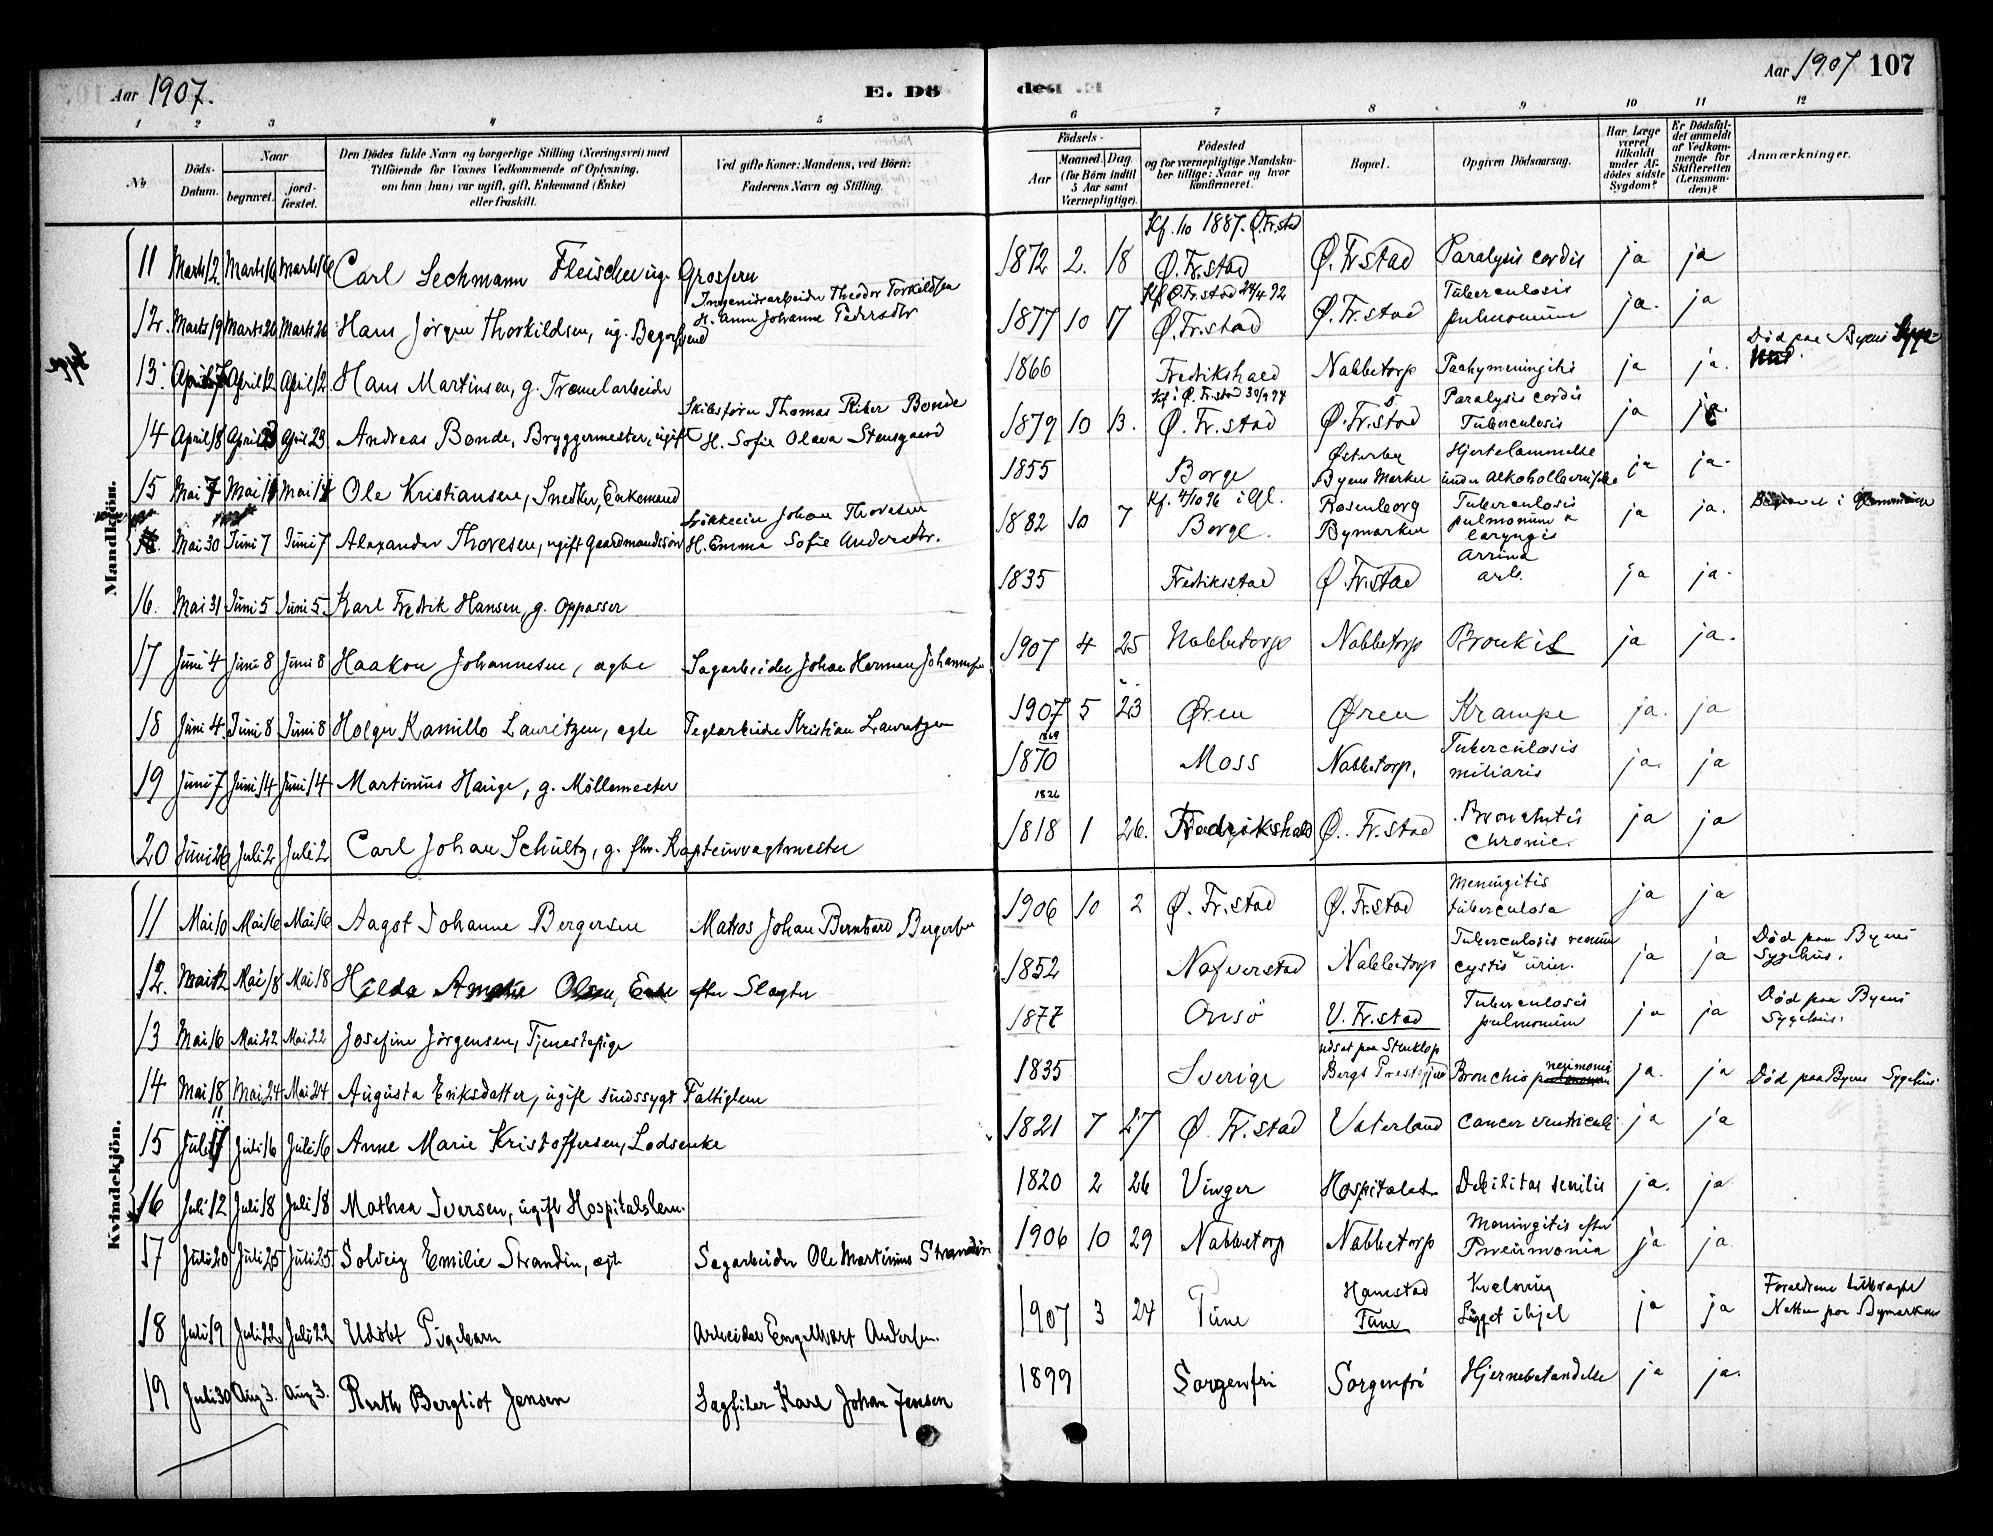 Aar 1907.
E. Dö
de.
Aar 1907 107
1 2 3 4 5 6 7 8 9 10 11 12
No.
Døds-Datum.
Naar
begravet.
jordfæstet.
Den Dødes fulde Navn og borgerlige Stilling (Næringsvei) med
Tilføiende for Voxnes Vedkommende af Oplysning,
om han (hun) var ugift, gift, Enkemand (Enke)
eller fraskilt.
Ved gifte Koner: Mandens, ved Børn:
Faderens Navn og Stilling.
Fødsels-
Aar
Maaned. Dag.
(for Børn indtil
5 Aar samt
Værnepligtige).
Fødested
og for værnepligtige Mandskaber tillige: Naar og hvor
konfirmeret.
Bopæl.
Opgiven Dødsaarsag.
Har Læge
været
tilkaldt
under Afdødes sidste
Sygdom?
Er Dødsfaldet anmeldt
af Vedkommende for
Skifteretten
(Lensmanden)?
Anmærkninger.
Mandkjön.
11 Marts 12. Marts 16 Marts 16 Carl Sechmann Fleischer ug. Grosserer 1872 2. 18 Kf. 1/10 1887. Ø.Fr.stad Ø.Fr.stad Ø.Fr.stad Paralysis cordis ja ja
12. Marts 19 Marts 26 Marts 26 Hans Jörgen Thorkildsen, ug. Theodor Torkildsen H. Anne Johanne 1877 10 17 Kf. Ø.Fr.stad 24/4 92 Ø.Fr.stad Ø.Fr.stad Tuberculosis pulmonum ja. ja
13. April 7 April 12 April 12 Hans Martinsen, g. 1866 Fredrikshald Nabbetorp Pachymeningitis ja ja. Död paa Byens
14 April 18 April 23 April 23 Andreas Bonde, Bryggermester, ugift Skibsförer Thomas Riber Bonde H. Sofie Olava Stensgaard 1879 10 13. Kf. i Ø.Fr.stad Ø.Fr.stad Ø.Fr.stad Paralysis cordis Tuberculosis ja ja
15 Mai 7 Mai 14 Mai 14 Ole Kristiansen, Snedker, Enkemand 1855 Borge Østerby Byens Marker Hjertelammelse under ja ja.
Mai 30 Juni 7 Juni 7 Alexander Thoresen, ugift Gaardmandssön Johan Thoresen H. Emma Sofie 1882 10 7 Kf. 4/10 96 i Gl. Borge. Rosenborg Bymarken Tuberculosis pulmonum & laryngis ja ja.
16. Mai 31 Juni 5 Juni 5. Karl Fredrik Hansen, g. Oppasser 1835 Fredriksstad Ø.Fr.stad ja ja.
17 Juni 4 Juni 8 Juni 8 Haakon Johannesen, ægte Sagarbeider Johan Herman 1907 4 25 Nabbetorp Nabbetorp Bronkit ja ja.
18 Juni 4. Juni 8 Juni 8 Holger Kamillo Lauritzen, ægte Teglarbeider Kristian Lauritzen 1907 5 23 Øren Øren Krampe ja. ja
19 Juni 7 Juni 14 Juni 14 Martinius Hauge, g. Möllemester 1869 1870 Moss Nabbetorp. Tuberculosis miliaris ja. ja
20 Juni 26 Juli 2 Juli 2 Carl Johan Schultz, g. fhv. Kapteinvagtmester 1826 1818 1 26. Fredrikshald Ø. Fr.stad Bronchitis chronic. ja ja
Kvindekjön.
11 Mai 10 Mai 16 Mai 16 Aagot Johanne Bergersen Matros Johan Bernhard 1906 10 2 Ø. Fr.stad Ø. Fr.stad Meningitis tuberculosa ja ja
12. Mai 12 Mai 18 Mai 18 Hilda Olsen, Enke efter Slagter 1852 Nafverstad Nabbetorp Tuberculosis renum cystis urin. ja ja Död paa Byens Sygehus.
13 Mai 16 Mai 22 Mai 22 Josefine Jörgensen, Tjenestepige 1877 Onsö V. Fr.stad Tuberculosis pulmonum ja ja Död paa Byens Sygehus.
14 Mai 18 Mai 24 Mai 24 Augusta Eriksdatter, ugift sindssygt Fattiglem 1835 Sverige udsat paa Bergs Bronchio ja. ja Död paa Byens Sygehus.
15 Juli 11 Juli 16 Juli 16 Anne Marie Kristoffersen, Lodsenke 1821 7 27 Ø. Fr.stad Vaterland Cancer ventriculi ja ja
16 Juli 12 Juli 18 Juli 18 Mathea Iversen, ugift Hospitalslem. 1820 2 26 Vinger Hospitalet Debilitas senilis ja. ja
17 Juli 20 Juli 25 Juli 25 Solveig Emilie Strandin, Sagarbeider Ole Martinius Strandin 1906 10 29 Nabbetorp Nabbetorp Meningitis efter Pneumonia ja ja
18 Juli 19 Juli 22 Juli 22 Udöbt Pigebarn Arbeider Engelhart 1907 3 24 Tune Tune Kvelning Ligget ihjel ja ja Forældrene Natten paa Bymarken
19 Juli 30 Aug 3. Aug 3. Ruth Bergliot Jensen Sagfiler Karl Johan Jensen 1899 Sorgenfri Sorgenfri Hjernebetændelse ja ja.